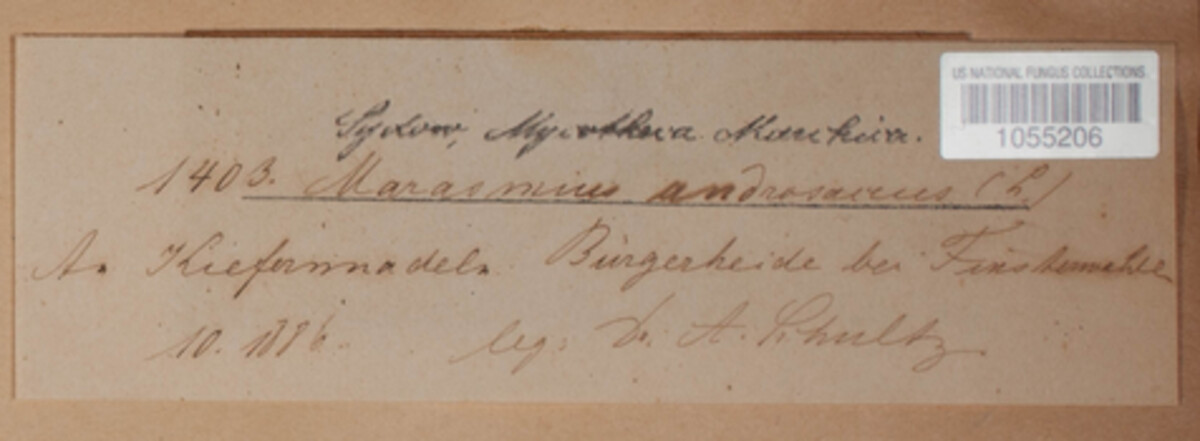 US NATIONAL FUNGUS COLLECTIONS
1055206
Sydow, Mycotheca Marchica.
1403. Marasmius androsaceus (L.)
An Kiefernnadeln Bürgerheide bei Finsterwalde
10. 1886. leg. Dr. A. Schultz